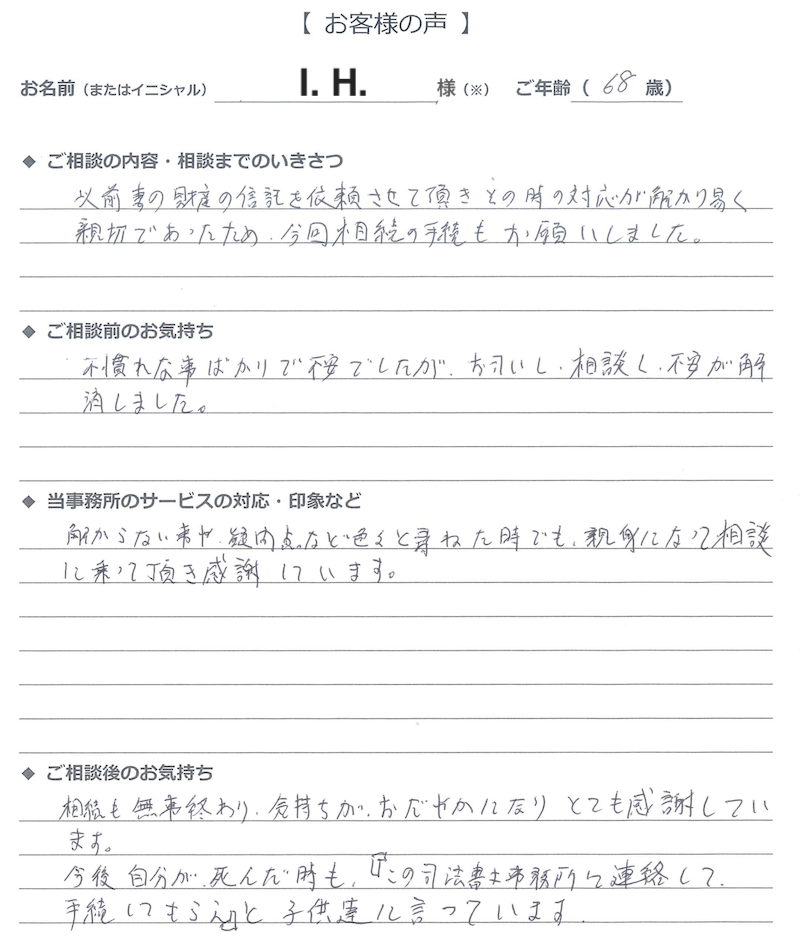 【 お客様の声 】
お名前（またはイニシャル） I. H. 様（※） ご年齢（ 68 歳）
◆ ご相談の内容・相談までのいきさつ
以前妻の財産の信託を依頼させて頂きその時の対応が解かり易く
親切であったため、今回相続の手続もお願いしました。
◆ ご相談前のお気持ち
不慣れな事ばかりで不安でしたが、お伺いし、相談し、不安が解
消しました。
◆ 当事務所のサービスの対応・印象など
解からない事や、疑問点など色々と尋ねた時でも、親身になって相談
に乗って頂き感謝しています。
◆ ご相談後のお気持ち
相続も無事終わり、気持ちが、おだやかになりとても感謝してい
ます。
今後自分が、死んだ時も、「この司法書士事務所に連絡して、
手続してもらえ」と子供達に言っています.